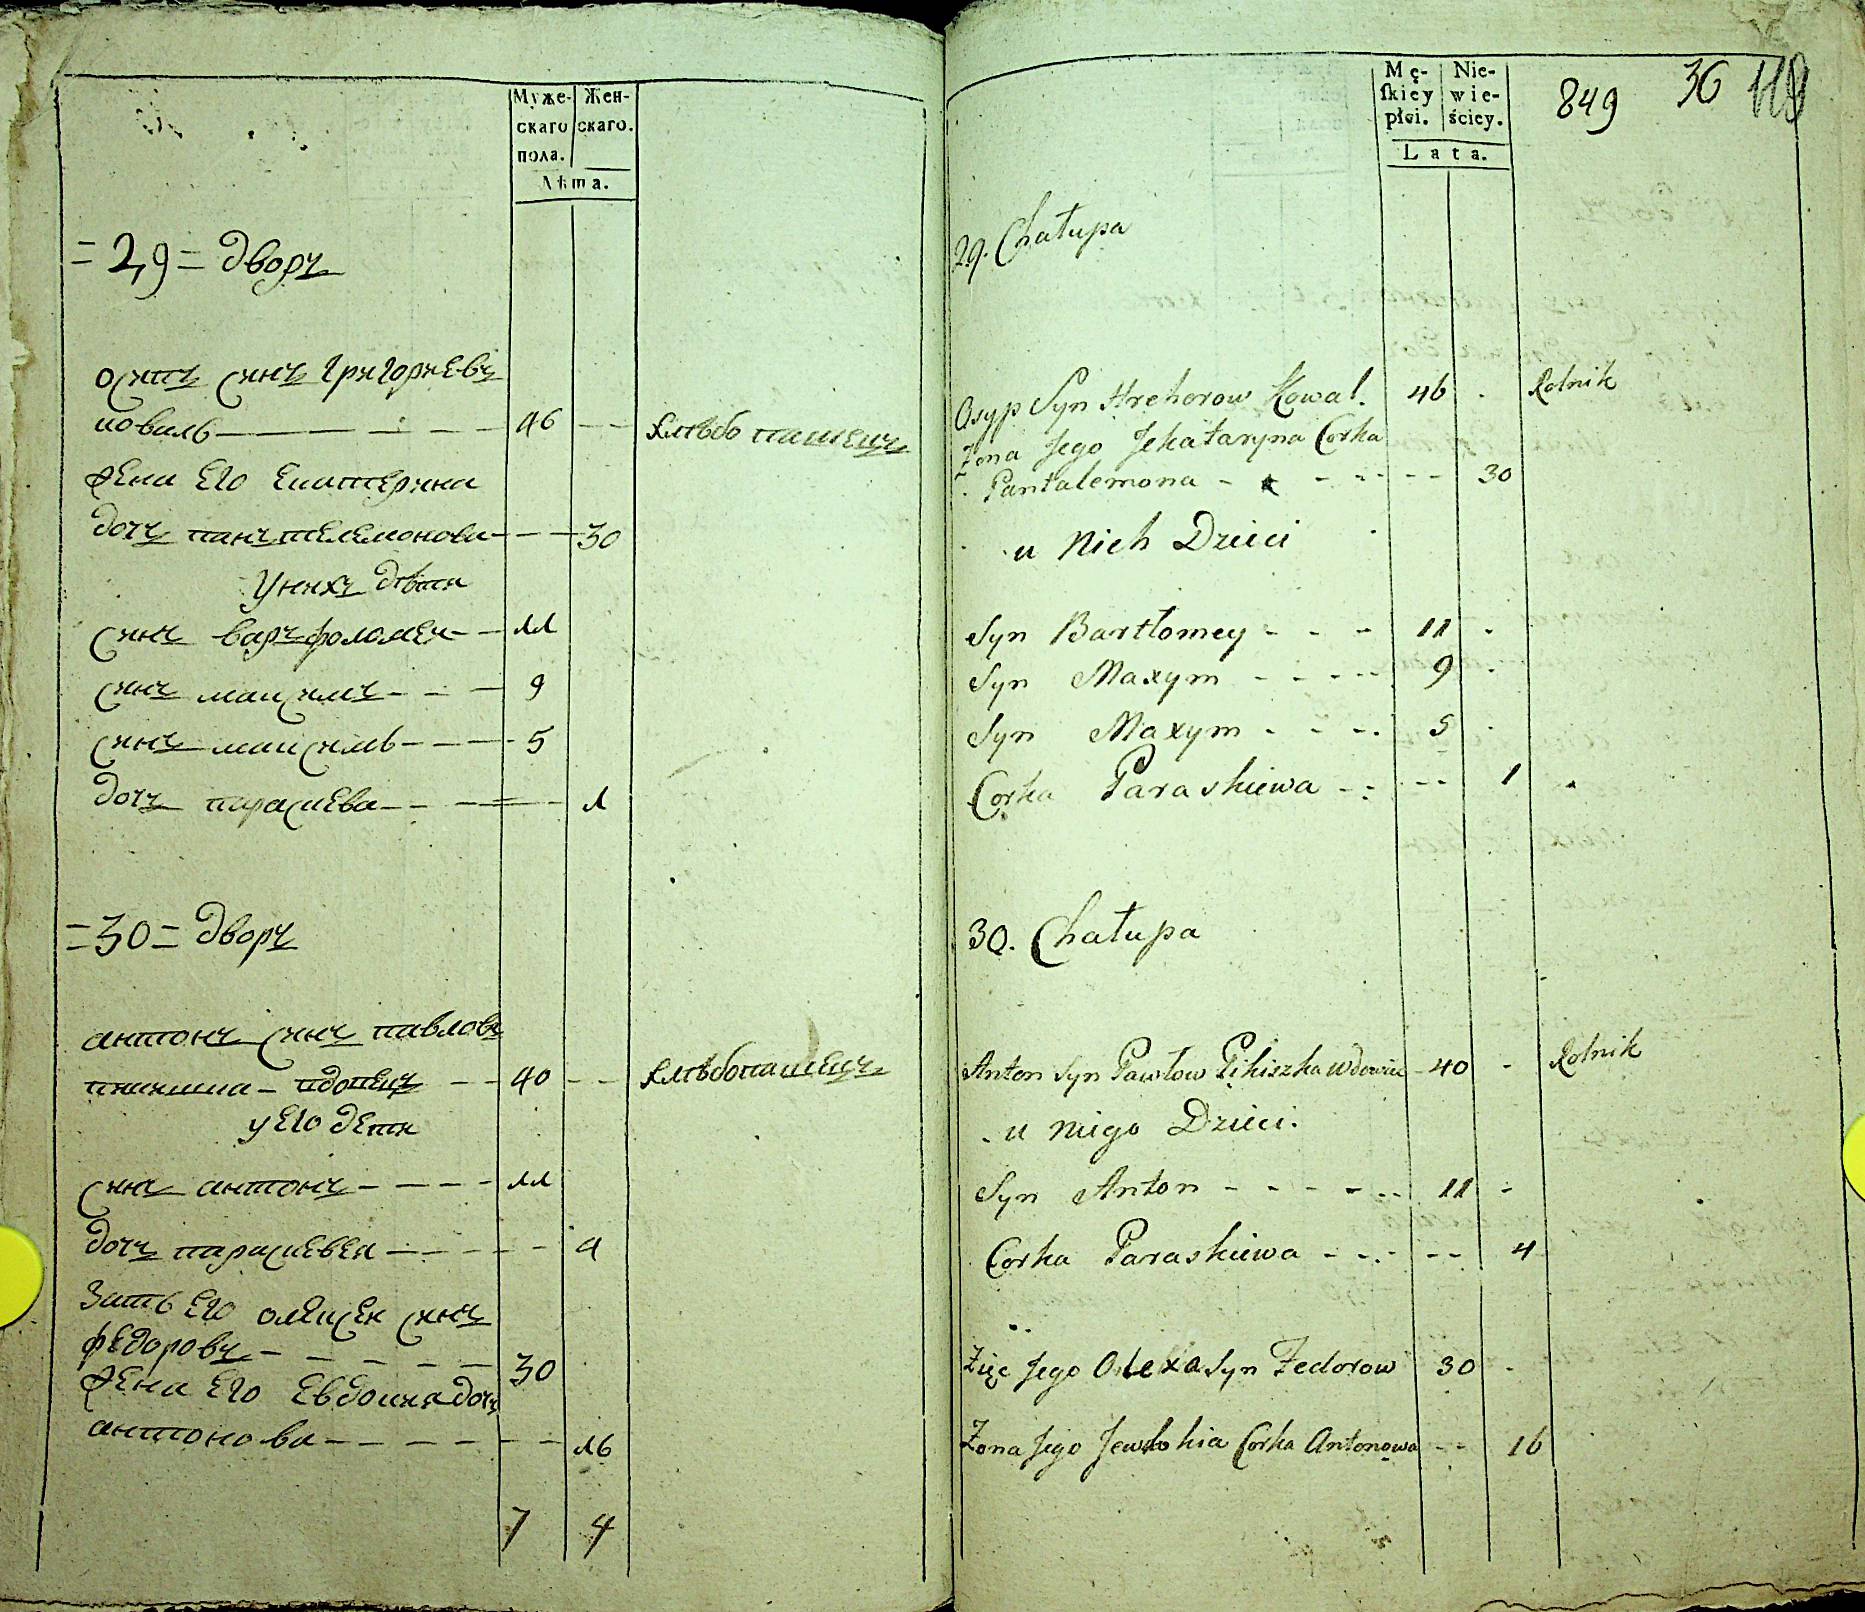 Муже-
скаго
пола.
Жен-
скаго.
Лѣта.
=29= дворъ
осипъ синъ григориевъ
коваль — — — — — 46 — — хлѣбо пашецъ
жена его екатерина
дочъ панътелемонова — — — 30
унихъ дѣти
синъ варъфоломей — — 11
синъ максимъ — — — 9
синъ максимь — — — 5
дочъ параскева — — — — 1
=30= дворъ
антонъ синъ павловъ
пикишка — вдовецъ — — 40 — — хлѣбопашецъ
у его дети
синъ антонъ — — — — 11
дочъ параскевея — — — — — 4
Зять его олексей синъ
федоровъ — — — — — 30
жена его евдокия дочъ
антонова — — — — — — 16
7 4
Mę-
skiey
płci.
Nie-
wie-
ściey.
Lata.
849 36 118
29. Chałupa
Osyp Syn Hrehorow Kowal. 46 . Rolnik
Żona Jego Jekataryna Corka
Pantalemona - - - - - - 30
u Nich Dzieci
Syn Bartłomey - - - 11 -
Syn Maxym - - - - 9 -
Syn Maxym - - - . 5 -
Corka Paraskiewa - - - - 1
30. Chałupa
Anton Syn Pawłow Pikiszka Wdowiec - 40 - Rolnik
u niego Dzieci.
Syn Anton - - - - - - 11 -
Corka Paraskiewa - - - - - 4
Zięć Jego Olexa Syn Fedorow 30 -
Żona Jego Jewdokia Corka Antonowa - - 16